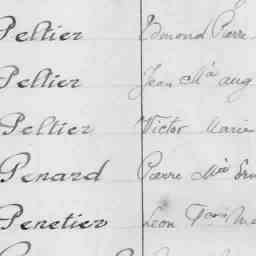 Peltier Edmond Pierre
Peltier Jean Mia aug
Peltier Victor Marie
Penard Pierre Mie
Penetier Léon